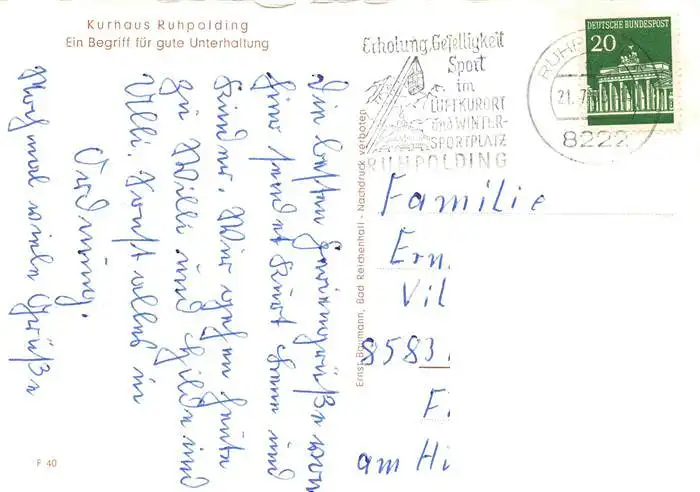 Kurhaus Ruhpolding
Ein Begriff für gute Unterhaltung
Erholung, Geselligkeit
Sport
im
LUFTKURORT
und WINTER-
SPORTPLATZ
RUHPOLDING
DEUTSCHE BUNDESPOST
20
RUHP
21. 7
8222
Die besten Feriengrüße von
hier sendet Kurt Hann und
Kinder. Wir gehen heute
zu Willi und Hilde und
Ulli. Sonst alles in
Ordnung.
Nochmal viele Grüße
Ernst Baumann, Bad Reichenhall - Nachdruck verboten
Familie
Ern
Vil
8583
Fi
am Hi
P 40